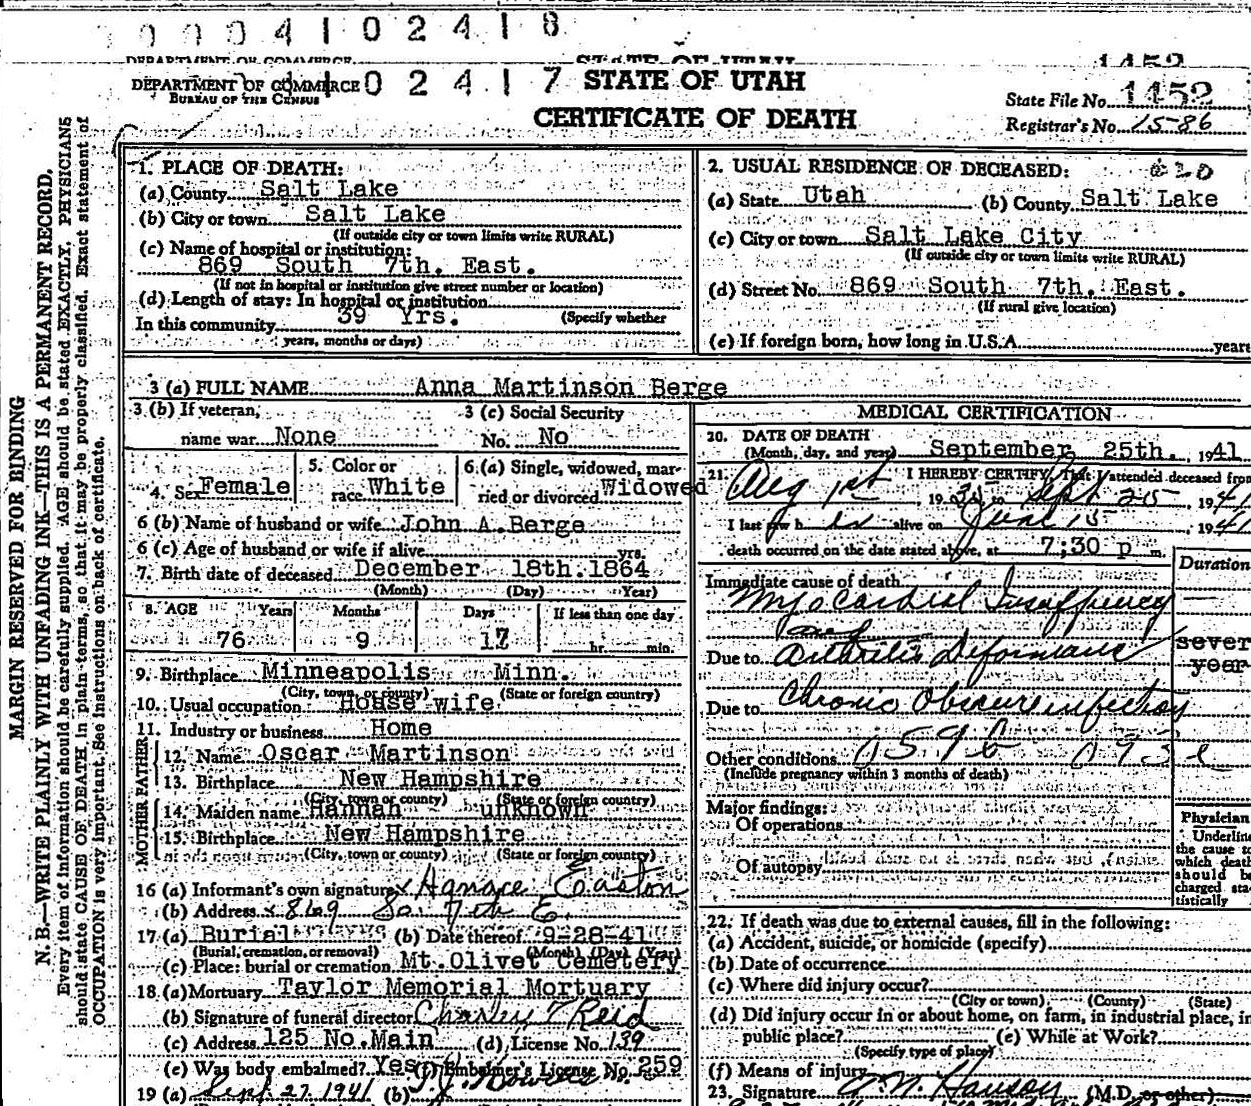 0004102418
DEPARTMENT OF COMMERCE STATE OF UTAH 1452
DEPARTMENT OF COMMERCE 102417 STATE OF UTAH
BUREAU OF THE CENSUS
CERTIFICATE OF DEATH
State File No. 1452
Registrar's No. 1586
MARGIN RESERVED FOR BINDING
N. B.—WRITE PLAINLY WITH UNFADING INK—THIS IS A PERMANENT RECORD.
Every item of information should be carefully supplied. AGE should be stated EXACTLY. PHYSICIANS
should state CAUSE OF DEATH in plain terms, so that it may be properly classified. Exact statement of
OCCUPATION is very important. See instructions on back of certificate.
1. PLACE OF DEATH:
(a) County Salt Lake
(b) City or town Salt Lake
(If outside city or town limits write RURAL)
(c) Name of hospital or institution:
869 South 7th. East.
(If not in hospital or institution give street number or location)
(d) Length of stay: In hospital or institution
In this community 39 Yrs. (Specify whether
years, months or days)
2. USUAL RESIDENCE OF DECEASED:
(a) State Utah (b) County Salt Lake
(c) City or town Salt Lake City
(If outside city or town limits write RURAL)
(d) Street No. 869 South 7th. East.
(If rural give location)
(e) If foreign born, how long in U.S.A. years
3 (a) FULL NAME Anna Martinson Berge
3 (b) If veteran, 3 (c) Social Security
name war None No. No
4. Sex Female 5. Color or race White 6. (a) Single, widowed, married or divorced Widowed
6 (b) Name of husband or wife John A. Berge
6 (c) Age of husband or wife if alive yrs.
7. Birth date of deceased December 18th. 1864
(Month) (Day) (Year)
8. AGE Years Months Days If less than one day
76 9 17 hr. min.
9. Birthplace Minneapolis Minn.
(City, town, or county) (State or foreign country)
10. Usual occupation House wife
11. Industry or business Home
FATHER
12. Name Oscar Martinson
13. Birthplace New Hampshire
(City, town or county) (State or foreign country)
MOTHER
14. Maiden name Hannah unknown
15. Birthplace New Hampshire
(City, town or county) (State or foreign country)
16 (a) Informant's own signature x Horace Easton
(b) Address x 869 So. 7th E.
17 (a) Burial (b) Date thereof 9-28-41
(Burial, cremation, or removal) (Month) (Day) (Year)
(c) Place: burial or cremation Mt. Olivet Cemetery
18 (a) Mortuary Taylor Memorial Mortuary
(b) Signature of funeral director Charles T Reid
(c) Address 125 No. Main (d) License No. 139
(e) Was body embalmed? Yes (f) Embalmer's License No. 259
19 (a) Sept. 27, 1941 (b)
MEDICAL CERTIFICATION
20. DATE OF DEATH
(Month, day, and year) September 25th., 1941
21. I HEREBY CERTIFY, That I attended deceased from
Aug 1st 19 to Sept 25, 1941
I last saw her alive on June 15, 1941
death occurred on the date stated above, at 7;30 p m.
Duration
Immediate cause of death
Myocardial Insuffiency
and
Due to Arthritis Deformans
several
year
Due to Chronic Obscure infection
Other conditions 059b 093c
(Include pregnancy within 3 months of death)
Major findings:
Of operations
Of autopsy
Physician
Underline
the cause to
which death
should be
charged sta-
tistically
22. If death was due to external causes, fill in the following:
(a) Accident, suicide, or homicide (specify)
(b) Date of occurrence
(c) Where did injury occur?
(City or town), (County) (State)
(d) Did injury occur in or about home, on farm, in industrial place, in
public place? (e) While at Work?
(Specify type of place)
(f) Means of injury
23. Signature Hanson (M.D. or other)